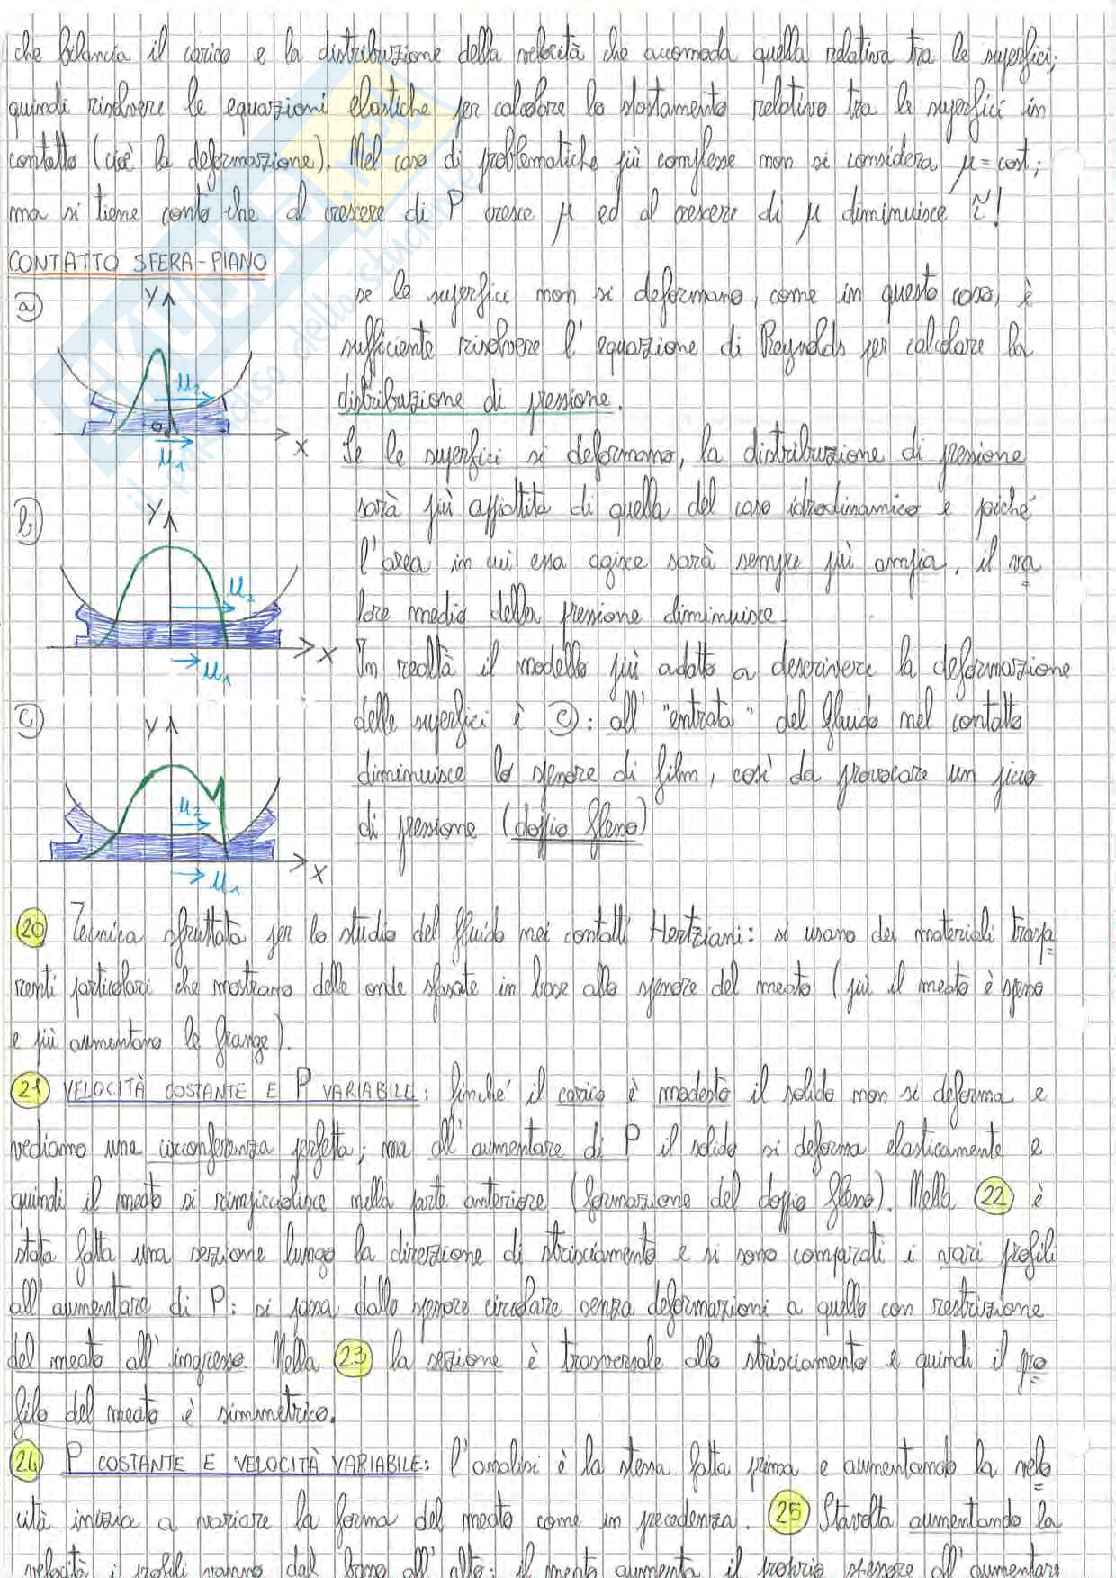 che bilancia il carico e la distribuzione della velocità che accomoda quella relativa tra le superfici;
quindi risolvere le equazioni elastiche per calcolare lo spostamento relativo tra le superfici in
contatto (cioè la deformazione). Nel caso di problematiche più complesse non si considera μ=cost;
ma si tiene conto che al crescere di P cresce μ ed al crescere di μ diminuisce
CONTATTO SFERA-PIANO
a)
Y
u₂
O
X
u₁
se le superfici non si deformano, come in questo caso, è
sufficiente risolvere l'equazione di Reynolds per calcolare la
distribuzione di pressione.
Se le superfici si deformano, la distribuzione di pressione
sarà più appiattita di quella del caso idrodinamico e poiché
l'area in cui essa agisce sarà sempre più ampia, il va
lore medio della pressione diminuisce.
b)
Y
u₂
X
u₁
In realtà il modello più adatto a descrivere la deformazione
delle superfici è c): all' "entrata" del fluido nel contatto
diminuisce lo spessore di film, così da provocare un picco
di pressione (doppio
c)
Y
u₂
X
u₁
20 Tecnica sfruttata per lo studio del fluido nei contatti Hertziani: si usano dei materiali traspa
renti particolari che mostrano delle onde sfasate in base allo spessore del meato (più il meato è spesso
e più aumentano le frange).
21 VELOCITÀ COSTANTE E P VARIABILE: finché il carico è modesto il solido non si deforma e
vediamo una circonferenza perfetta; ma all'aumentare di P il solido si deforma elasticamente e
quindi il meato si rimpicciolisce nella parte anteriore (formazione del doppio Nella 22 è
stata fatta una sezione lungo la direzione di strisciamento e si sono comparati i vari profili
all'aumentare di P: si passa dallo spessore circolare senza deformazioni a quello con restrizione
del meato all'ingresso. Nella 23 la sezione è trasversale allo strisciamento e quindi il pro
filo del meato è simmetrico.
24 P COSTANTE E VELOCITÀ VARIABILE: l'analisi è la stessa fatta prima e aumentando la velo
cità inizia a variare la forma del meato come in precedenza. 25 Stavolta aumentando la
velocità i profili vanno dal basso all'alto: il meato aumenta il proprio spessore all'aumentare